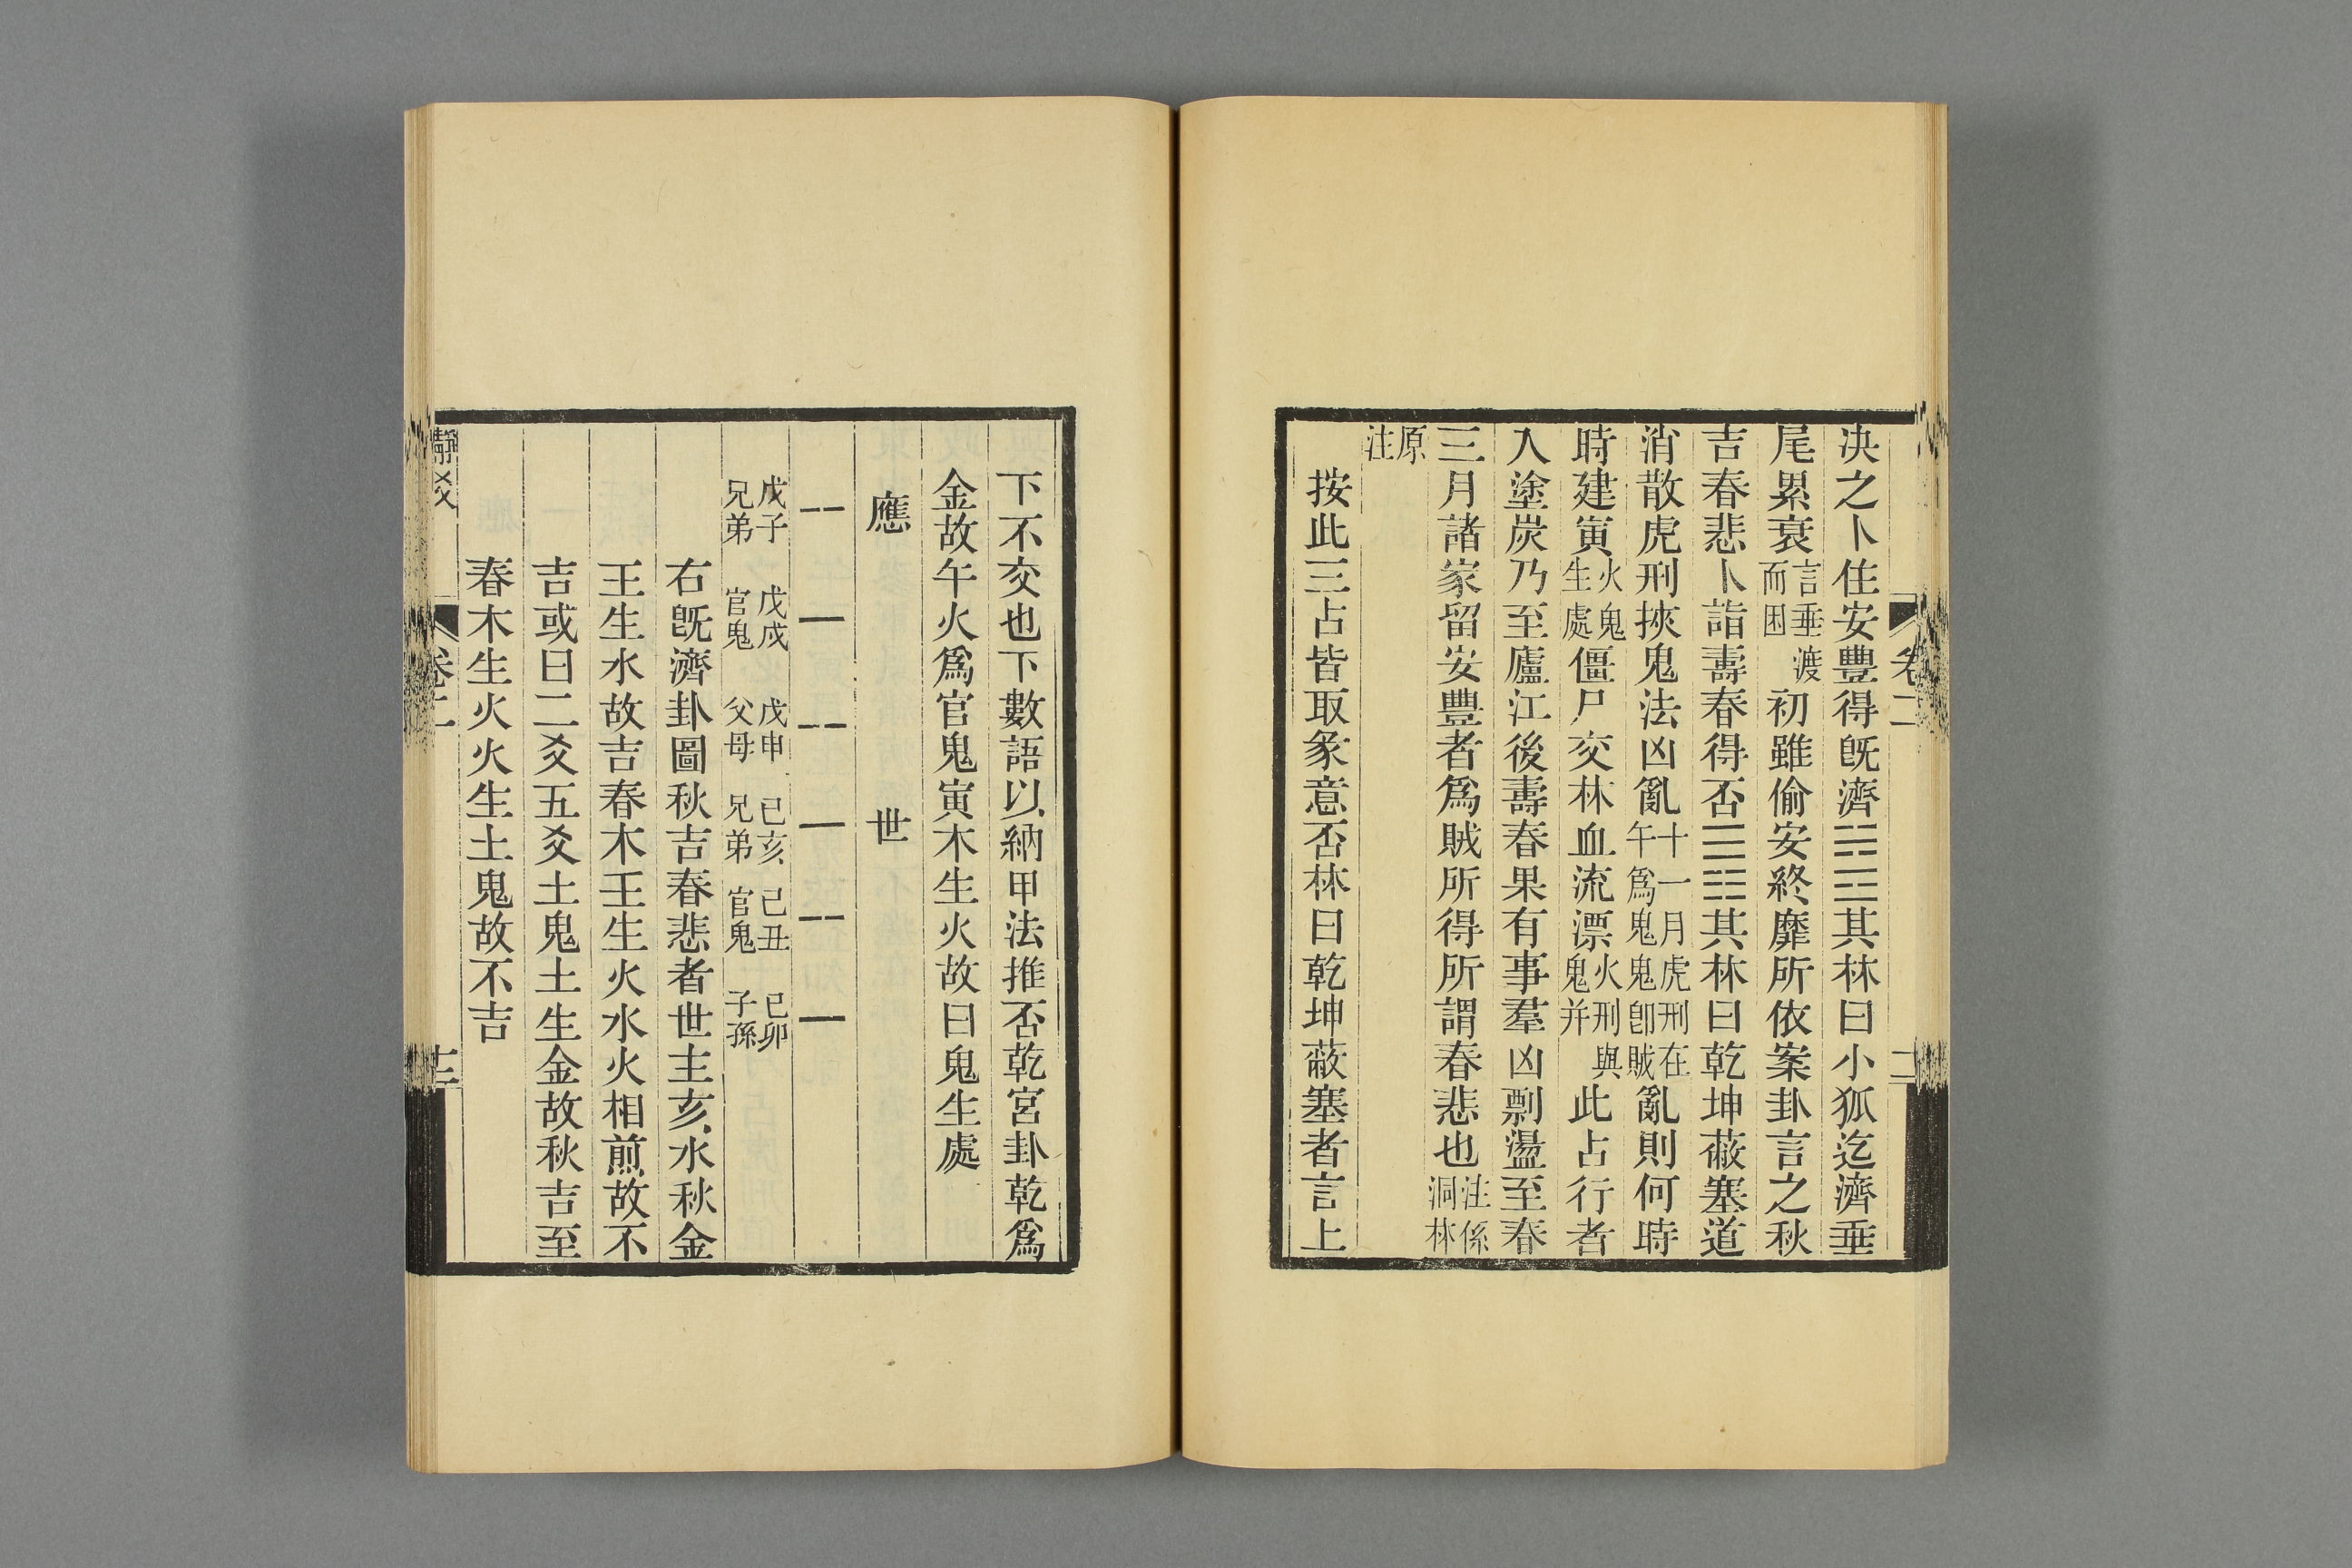 卷二
二
決之卜住安豐得旣濟䷾其林曰小狐迄濟垂
尾累衰言垂渡而困初雖偷安終靡所依案卦言之秋
吉春悲卜詣壽春得否䷋其林曰乾坤蔽塞道
消散虎刑挾鬼法凶亂十一月虎刑在午爲鬼鬼卽賊亂則何時
時建寅火鬼生處僵尸交林血流漂火刑與鬼并此占行者
入塗炭乃至廬江後壽春果有事羣凶剽盪至春
三月諸家留安豐者爲賊所得所謂春悲也注係洞林
原注
按此三占皆取象意否林曰乾坤蔽塞者言上
下不交也下數語以納甲法推否乾宮卦乾爲
金故午火爲官鬼寅木生火故曰鬼生處
應 世
⚋ ⚊ ⚋ ⚊ ⚋ ⚊
戊子兄弟 戊戌官鬼 戊申父母 己亥兄弟 己丑官鬼 己卯子孫
右旣濟卦圖秋吉春悲者世主亥水秋金
王生水故吉春木王生火水火相煎故不
吉或曰二爻五爻土鬼土生金故秋吉至
春木生火火生土鬼故不吉
卷二